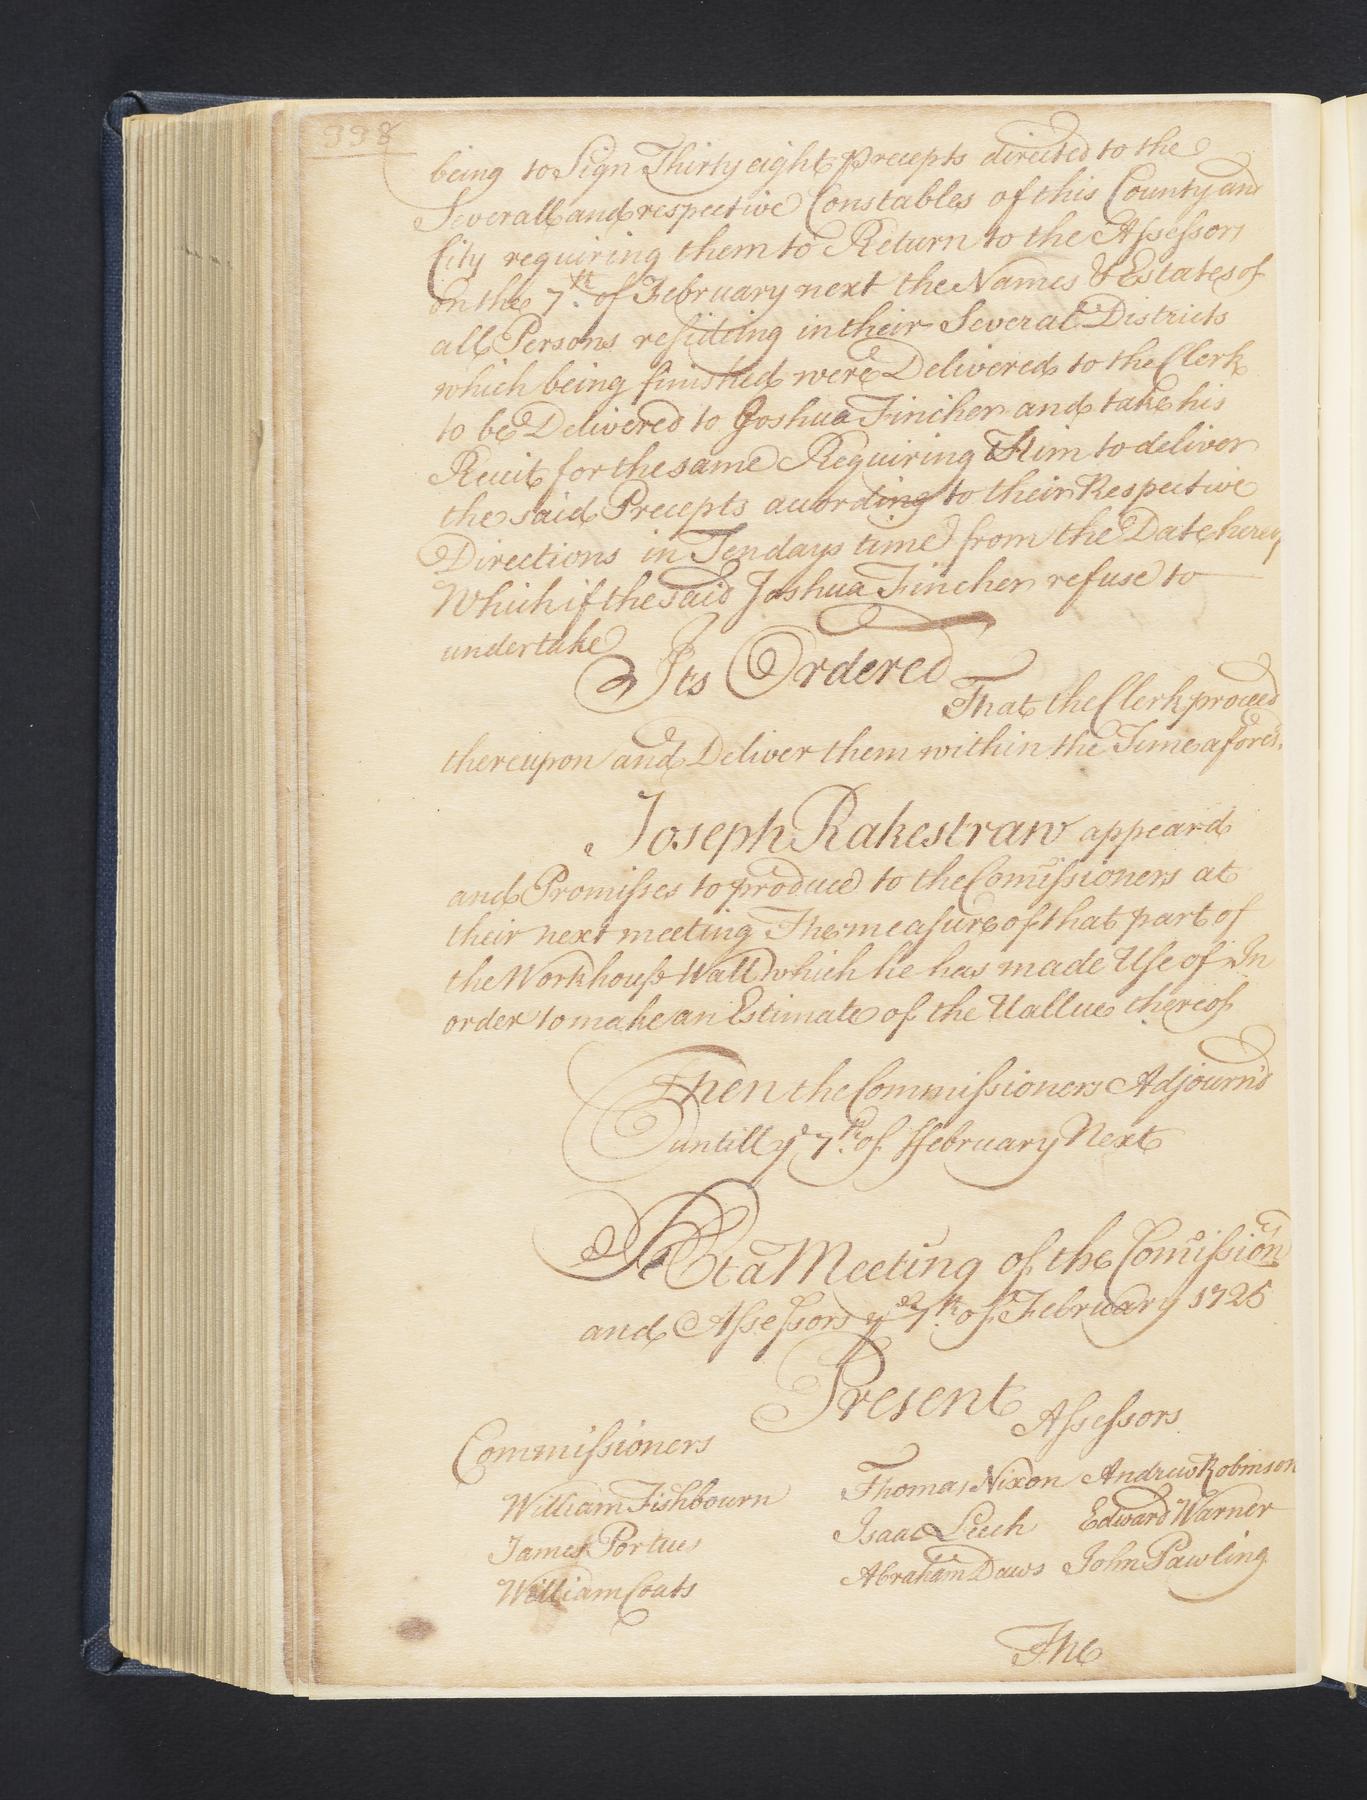 338
being to Sign Thirty eight precepts directed to the
Severall and respective Constables of this County and
City requiring them to Return to the Assessors
on the 7th of February next the Names & Estates of
all Persons residing in their Several Districts
which being finished were Delivered to the Clerk
to be Delivered to Joshua Fincher and take his
Receit for the same Requiring Him to deliver
the said Precepts according to their Respective
Directions in Ten days time from the Date hereof
Which if the said Joshua Fincher refuse to
undertake
Its Ordered
That the Clerk proceed
thereupon and Deliver them within the Time aforesd.
Joseph Rakestraw appeard
and Promisses to produce to the Comissioners at
their next meeting The measure of that part of
the Workhouse Wall which he has made Use of In
order to make an Estimate of the Vallue thereof
Then the Commissioners Adjournd
untill ye 7th of ffebruary Next
At a Meeting of the Comissionrs
and Assessors ye 7th of February 1725
Present
Commissioners
Assessors
William Fishbourn
James Portues
William Coats
Thomas Nixon Andrew Robinson
Isaac Leech Edward Warner
Abraham Daws John Pawling
The